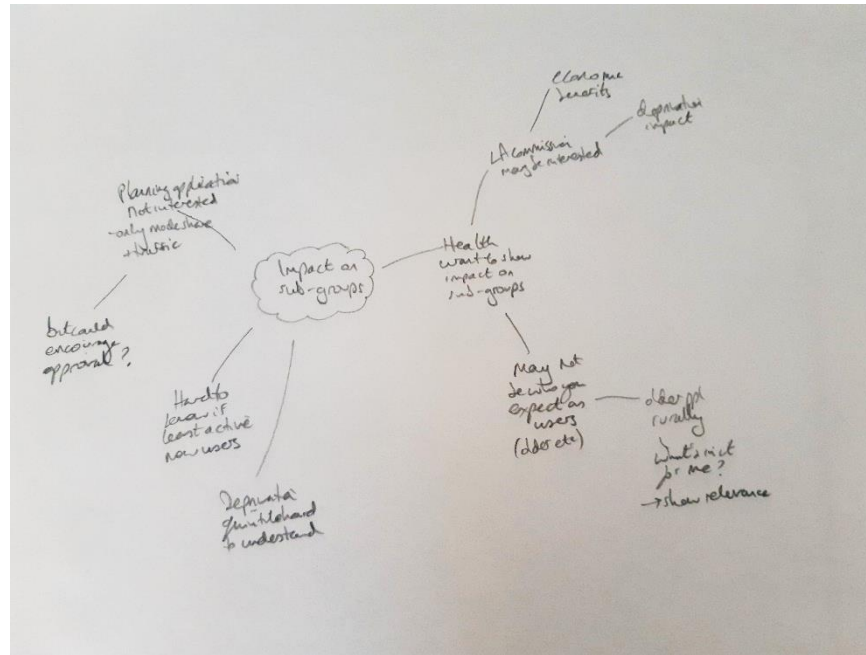 Impact on
sub-groups
Planning application
not interested
-only mode share
+ traffic
but could
encourage
approval?
Hard to
know if
least active
new users
Deprivation
quintile hard
to understand
Health
want to show
impact on
sub-groups
LA commission
may be interested
economic
benefits
deprivation
impact
May not
be who you
expect as
users
(older etc)
older ppl
rurally
what's in it
for me?
→ show relevance